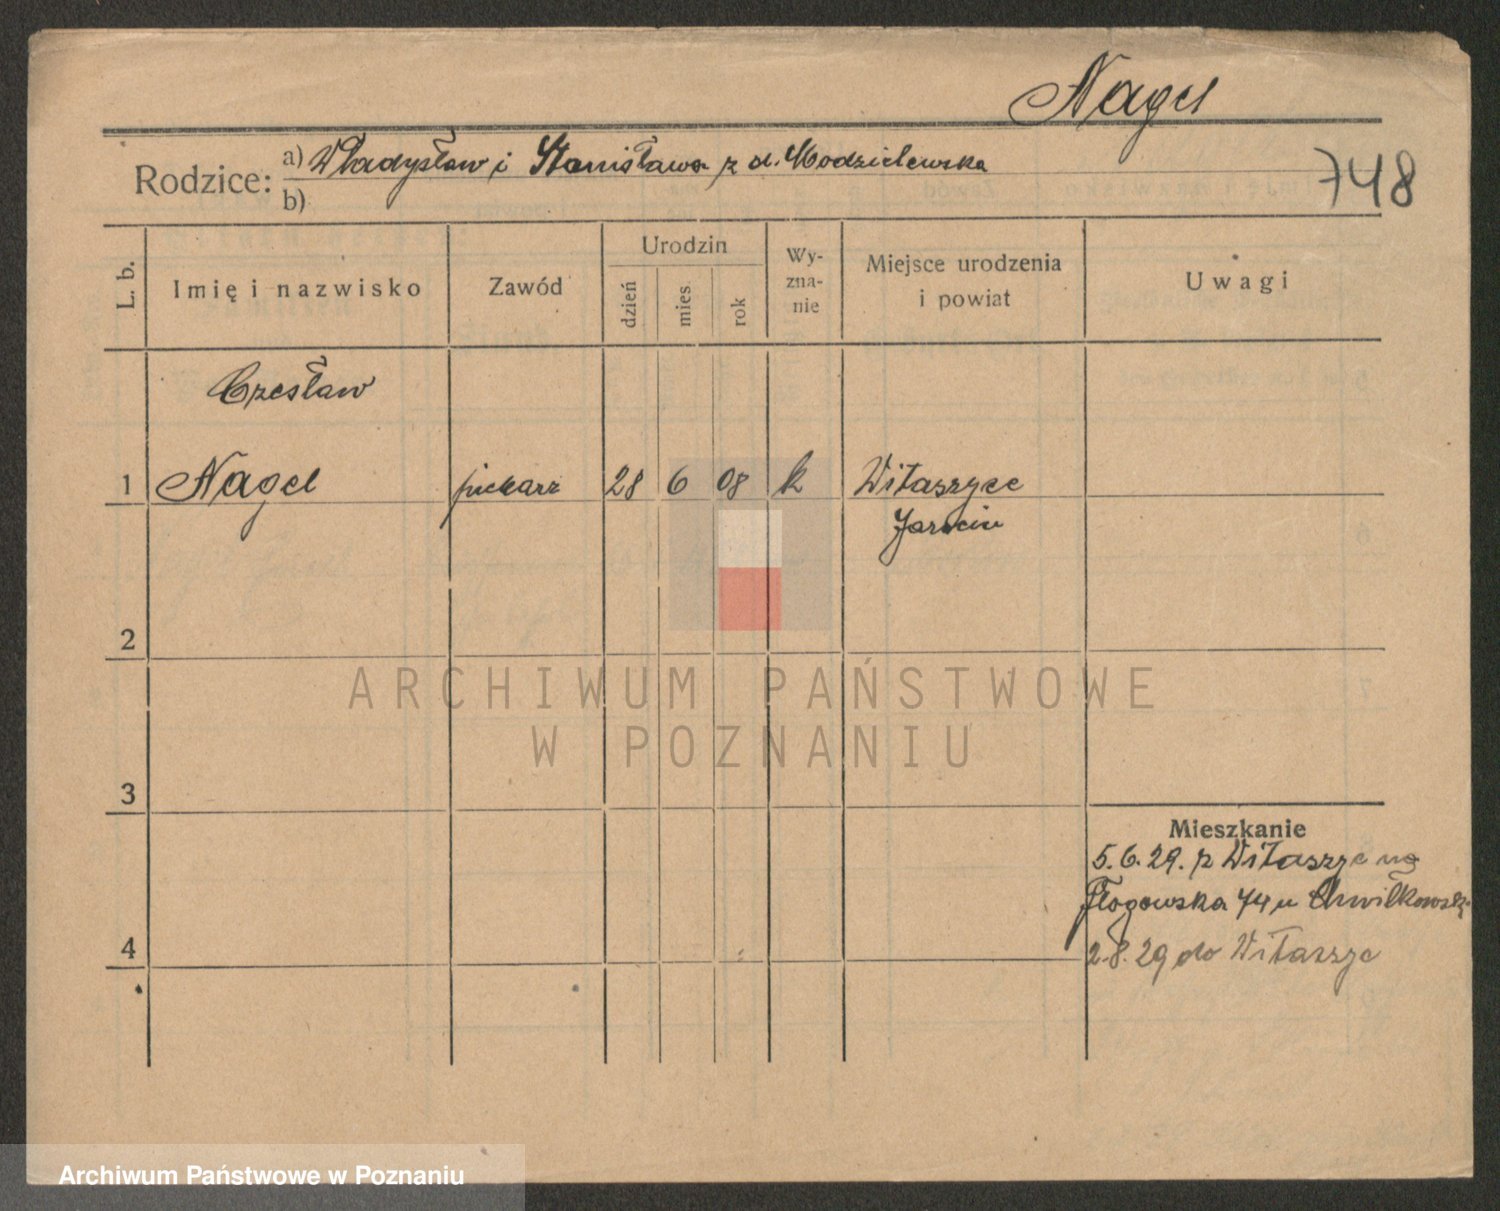 Nagel
Rodzice: a) Władysław i Stanisława z d. Modzielewska
b)
748
L. b.
Imię i nazwisko
Zawód
Urodzin
dzień
mies.
rok
Wy-
zna-
nie
Miejsce urodzenia
i powiat
Uwagi
Czesław
1 Nagel piekarz 28 6 08 k Witaszyce
Jarocin
2
3
4
Mieszkanie
5.6.29. z Witaszyc na
74 u
2.8.29 do Witaszyc
ARCHIWUM PAŃSTWOWE
W POZNANIU
Archiwum Państwowe w Poznaniu